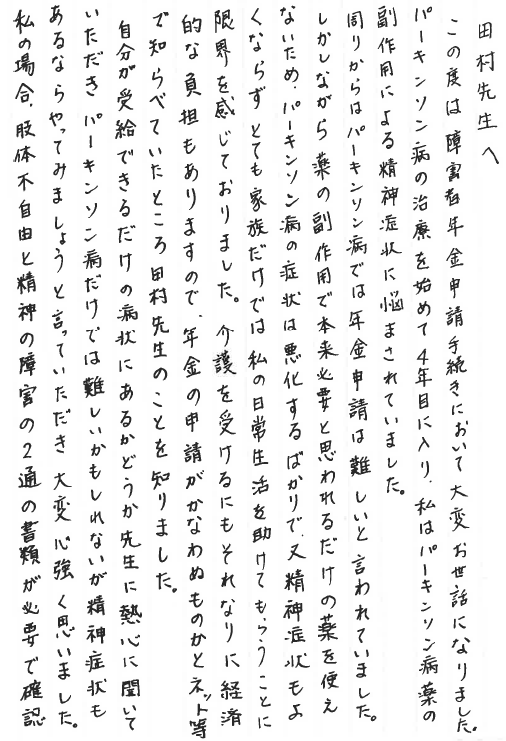 田村先生へ
この度は障害者年金申請手続きにおいて大変お世話になりました。
パーキンソン病の治療を始めて4年目に入り、私はパーキンソン病薬の
副作用による精神症状に悩まされていました。
周りからはパーキンソン病では年金申請は難しいと言われていました。
しかしながら薬の副作用で本来必要と思われるだけの薬を使え
ないため、パーキンソン病の症状は悪化するばかりで、又精神症状もよ
くならずとても家族だけでは私の日常生活を助けてもらうことに
限界を感じておりました。介護を受けるにもそれなりに経済
的な負担もありますので、年金の申請がかなわぬものかとネット等
で知らべていたところ田村先生のことを知りました。
自分が受給できるだけの病状にあるかどうか先生に熱心に聞いて
いただき パーキンソン病だけでは難しいかもしれないが精神症状も
あるならやってみましょうと言っていただき大変心強く思いました。
私の場合、肢体不自由と精神の障害の2通の書類が必要で確認